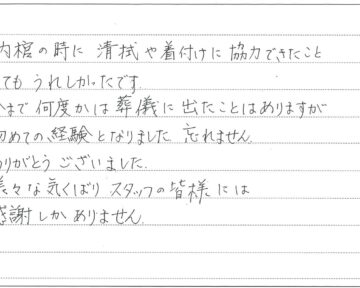 内棺の時に 清拭や着付けに 協力できたこと
ても うれしかったです
まで 何度かは 葬儀に 出たことはありますが
初めての 経験となりました 忘れません.
りがとう ございました.
様々な 気くばり スタッフの皆様には
感謝しか ありません.